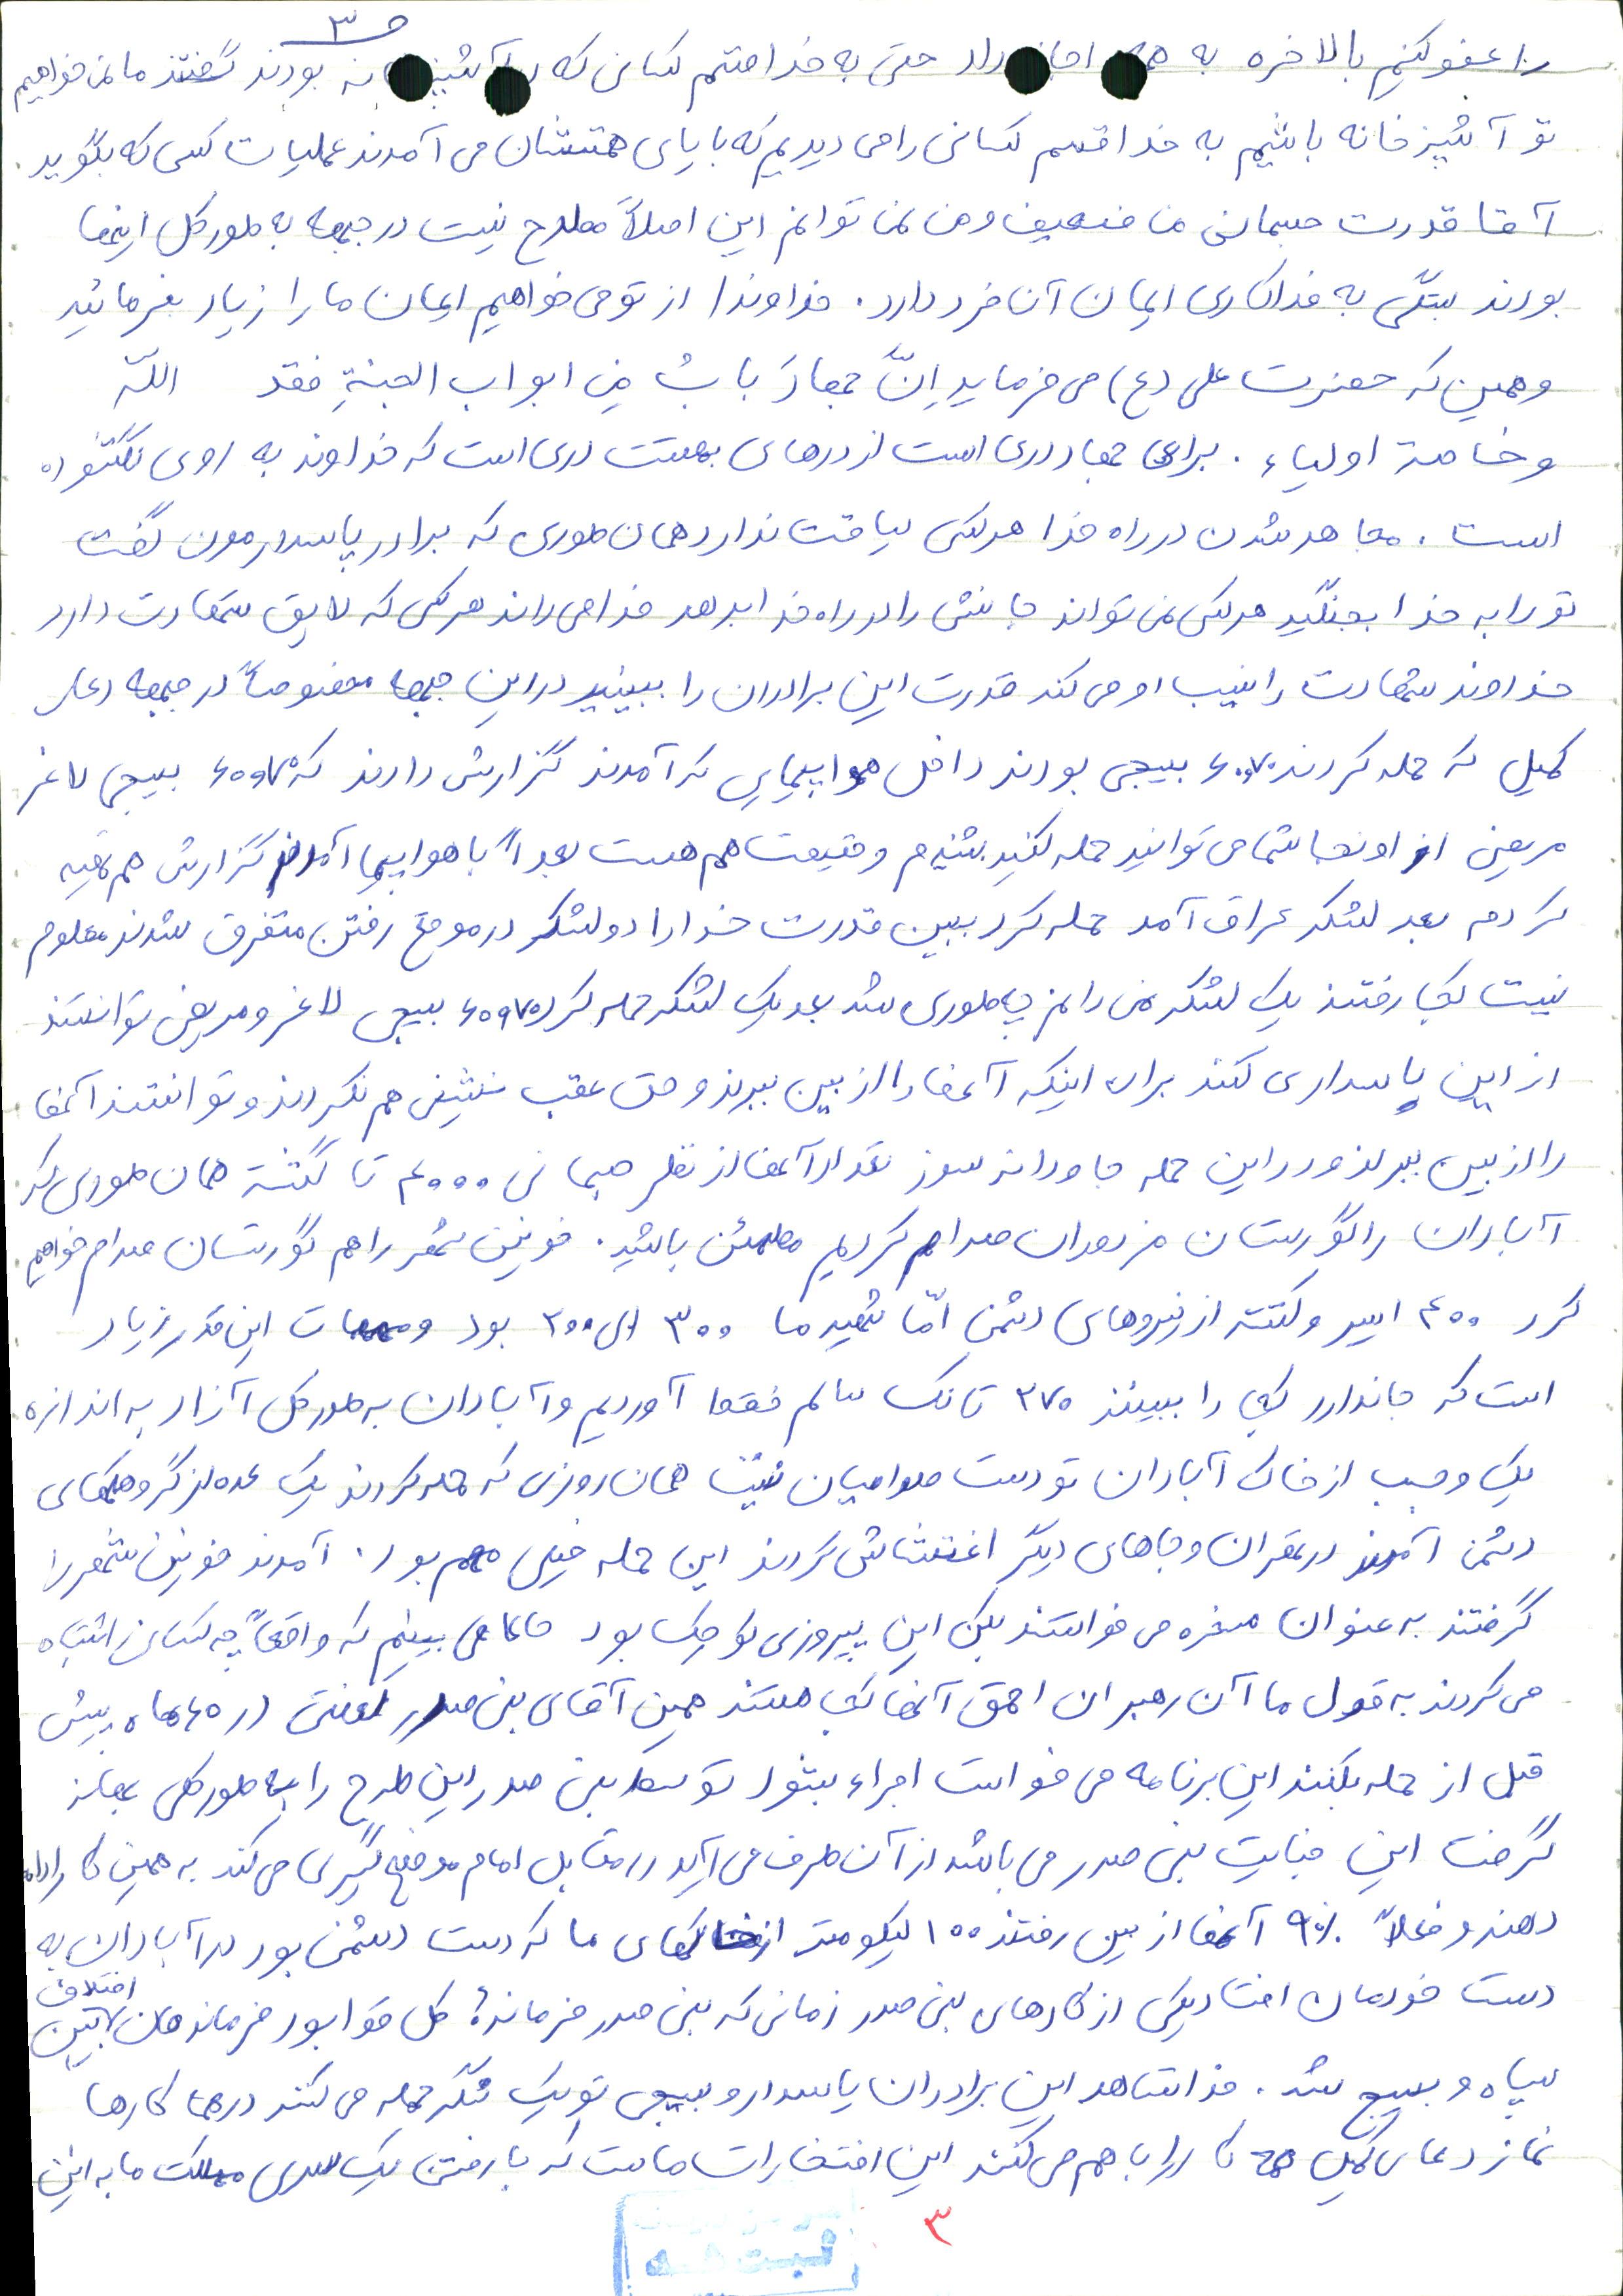 ص ۳
را عفو کنیم بالاخره به همه اجازه داد حتی به خدا قسم کسانی که در آشپزخانه بودند گفتند ما نمی خواهیم
تو آشپزخانه باشیم به خدا قسم کسانی را می دیدیم که با پای همتشان می آمدند عملیات کسی که بگوید
آقا قدرت جسمانی من ضعیف و من نمی توانم این اصلاً مطرح نیست در جبهه به طور کل اینها
بودند بستگی به فداکاری ایمان آن فرد دارد. خداوندا از تو می خواهیم ایمان ما را زیاد بفرمائید
و همین که حضرت علی (ع) می فرماید اِنَّ جهادَ بابُ مِن ابواب الجنةِ فقد الله
و خاصة اولیاء. براعی جهاد دری است از درهای بهشت دری است که خداوند به روی نگشوده
است. مجاهد شدن در راه خدا هرکسی لیاقت ندارد همان طوری که برادر پاسدارمون گفت
تو را به خدا بجنگید هرکسی نمی تواند جانش را در راه خدا بدهد خدا می داند هرکسی که لایق شهادت دارد
خداوند شهادت را نصیب او می کند قدرت این برادران را ببینید در این جبهه مخصوصاً در جبهه دعای
کمیل که حمله کردند ۶۰،۷۰ بسیجی بودند داخل هواپیمایی که آمدند گزارش دادند که ۶۰،۷۰ بسیجی لاغر
مریض از اونها شما می توانید حمله کنید بشنیدم وضعیت هم هست بعداً با هواپیما آمدند گزارش هم تهیه
کردم بعد لشکر عراق آمد حمله کرد ببین قدرت خدا را دو لشکر در موقع رفتن متفرق شدند معلوم
نیست کجا رفتند یک لشکر نمی دانم چه طوری شد بعد یک لشکر حمله کرد ۶۰،۷۰ بسیجی لاغر و مریض توانستند
از این پاسداری کنند برای اینکه آنها را از بین ببرند و حتی عقب نشینی هم نکردند و توانستند آنها
را از بین ببرند و در این حمله جاودانه سوز تعداد آنها از نظر جسمانی ۴۰۰۰ تا کشته همان طوری که
آبادان را گورستان مزدوران صدام کردیم مطمئن باشید. خونین شهر را هم گورستان صدام خواهیم
کرد ۴۰۰ اسیر و کشته از نیروهای دشمن امّا شهید ما ۳۰۰ الی ۲۰۰ بود و مهمات این قدر زیاد
است که جا ندارد کجا را ببینند ۳۷۰ تانک سالم فقط آوردیم و آبادان به طور کل آزاد به اندازه
یک وجب از خاک آبادان تو دست صدامیان نیست همان روزی که حمله کردند یک عده از گروهکهای
دشمن آمدند در تهران و جاهای دیگر اغتشاش کردند این حمله خیلی مهم بود. آمدند خونین شهر را
گرفتند به عنوان سفره می خواستند بکن این پیروزی کوچک بود حالا می بینم که واقعاً چه کسانی اشتباه
می کردند به قول ما آن رهبران احمق آنها کجا هستند همین آقای بنی صدر لعنتی در ۶ ماه پیش
قبل از حمله بکنند این برنامه می خواست اجراء بشود توسط بنی صدر این طرح را به طور کلی بهانه
گرفت این جنایت بنی صدر می باشد از آن طرف می آید در مقابل امام موضع گیری می کند به همین کار ادامه
دهند و فعلاً ۹۰٪ آنها از بین رفتند ۱۰۰ کیلومتر از خاکهای ما که دست دشمن بود در آبادان به
دست خودمان افتاد یکی از کارهای بنی صدر زمانی که بنی صدر فرماندهٔ کل قوا بود فرماندهان اختلاف بین
سپاه و بسیج شد. خدا شاهد این برادران پاسدار و بسیجی تو یک سنگر حمله می کنند در همه کارها
نماز دعای کمیل همه کار را با هم می کنند این افتخارات ماست که با رفتن یک سری مملکت ما به این
۳
ثبت شد